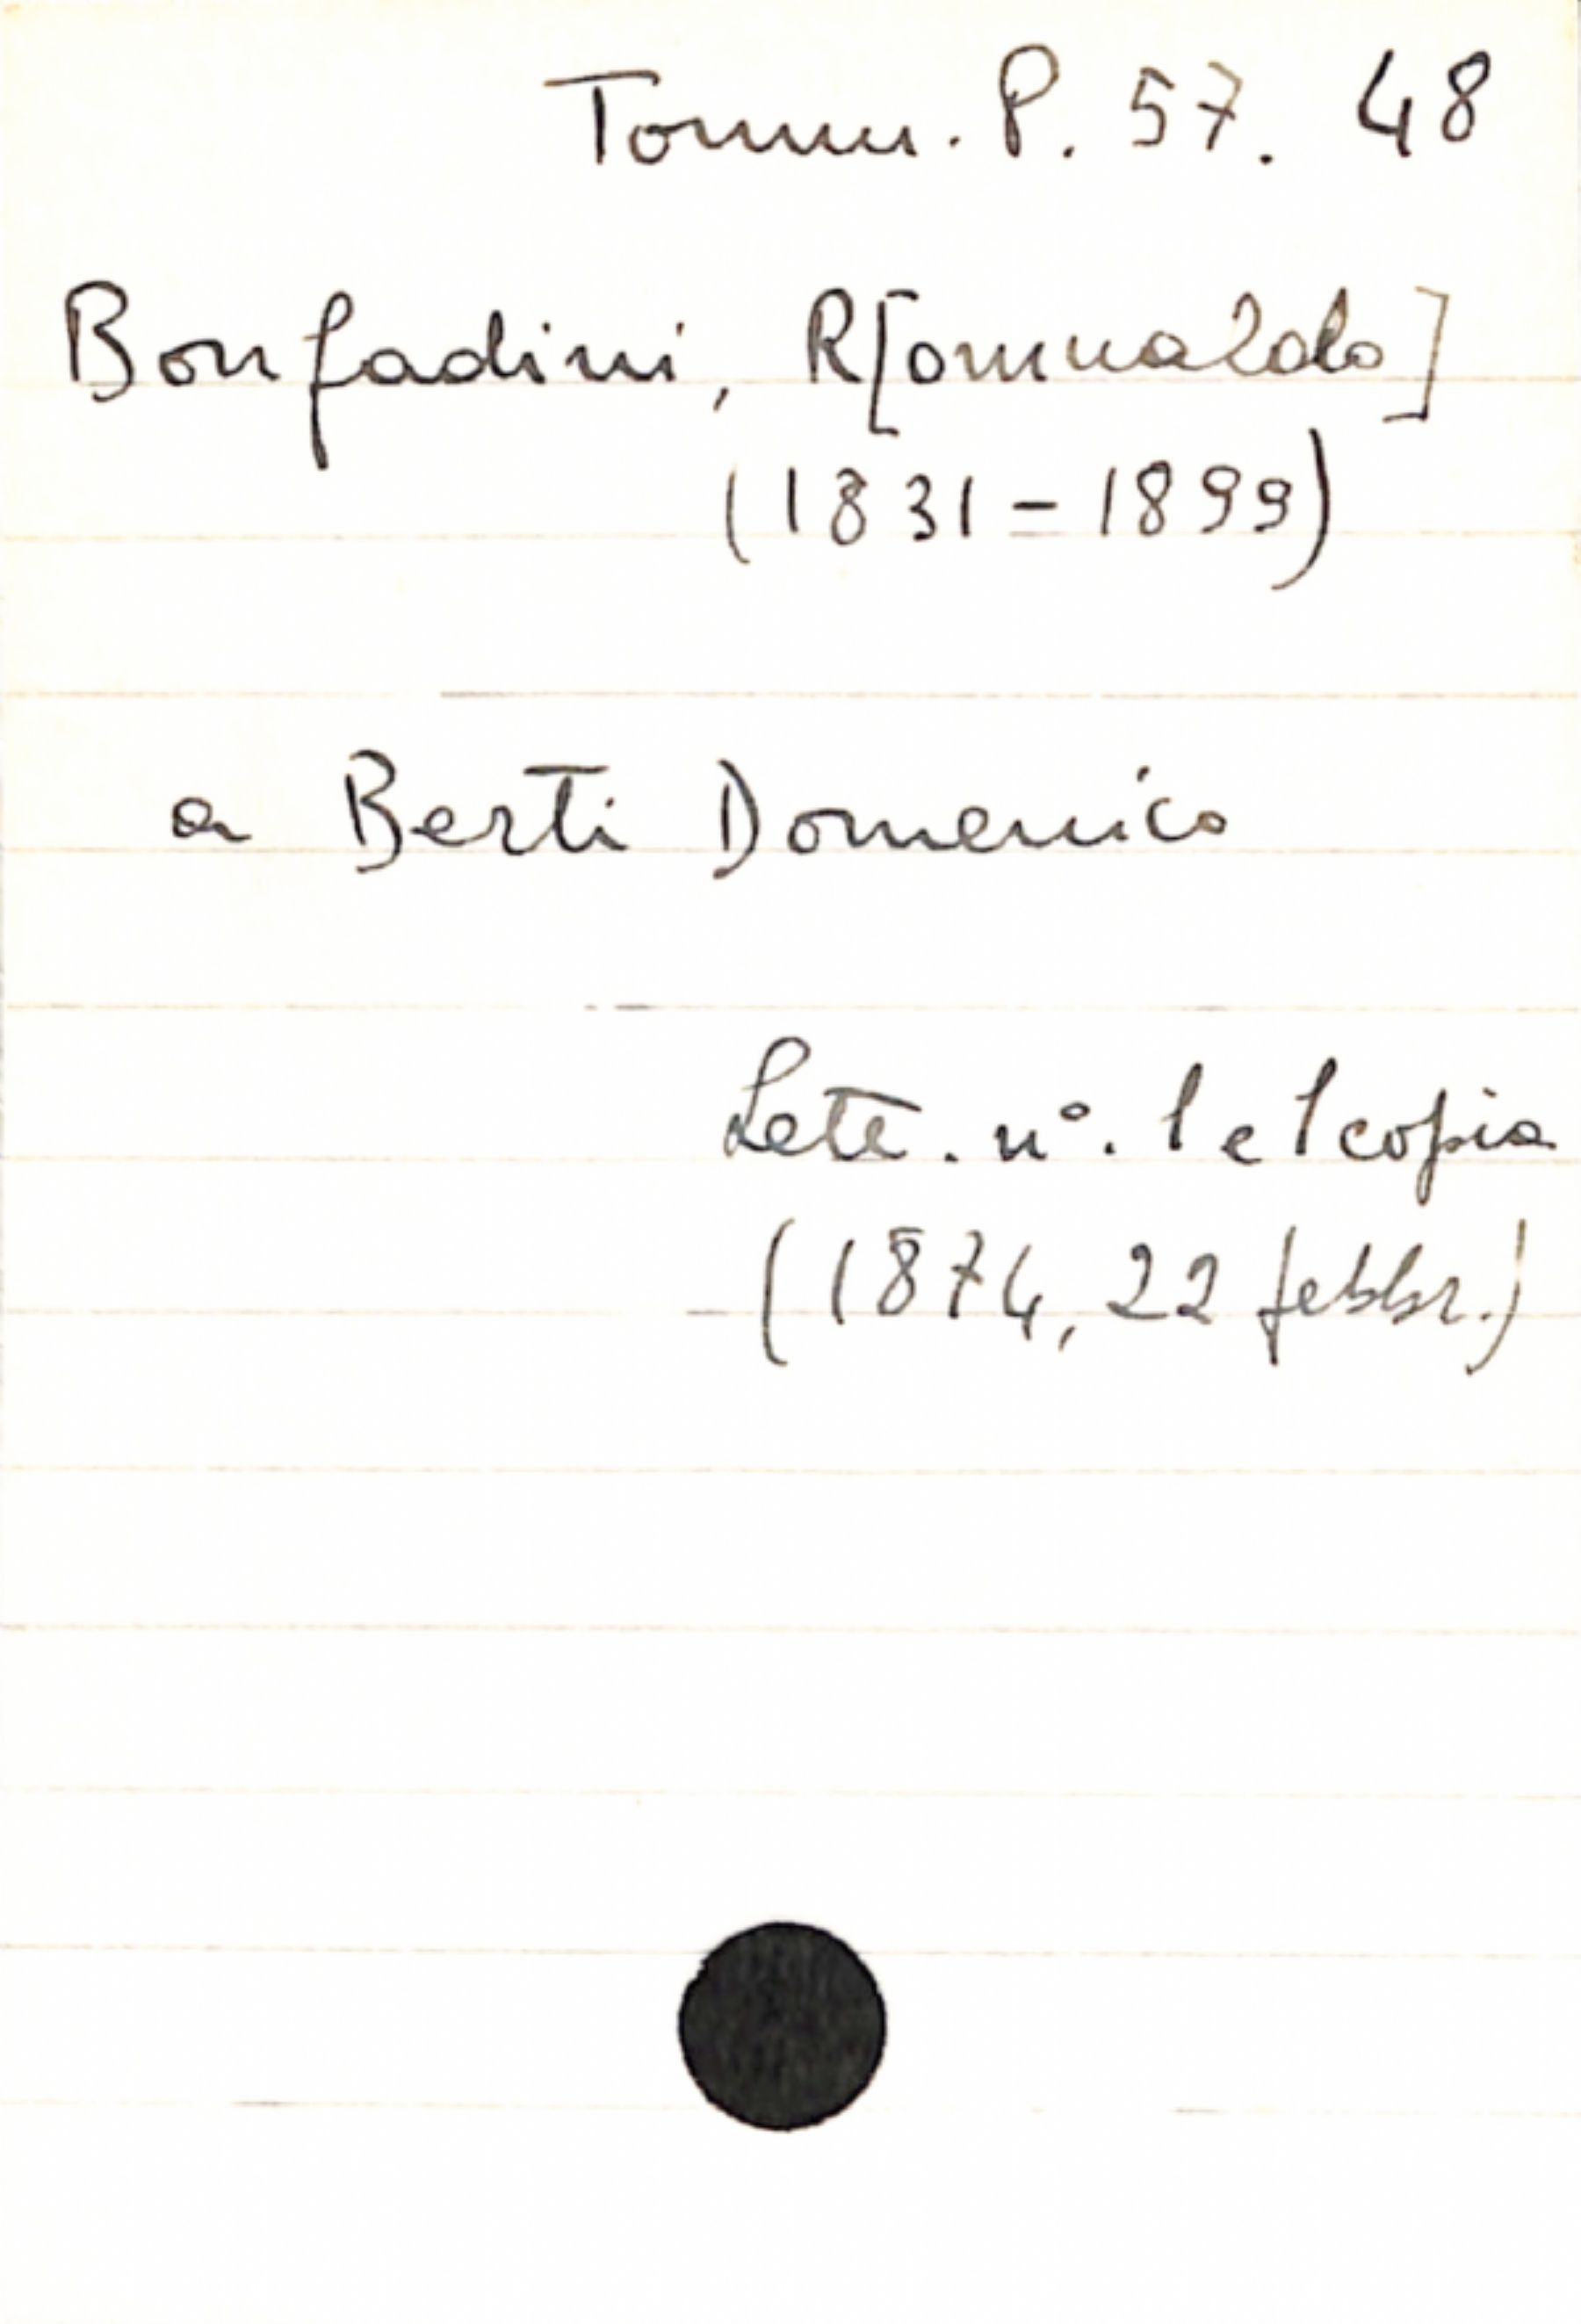 Tomm. P. 57. 48
Bonfadini, R[omualdo]
(1831-1899)
a Berti Domenico
Lett. n°. 1 e 1 copia
(1874, 22 febbr.)